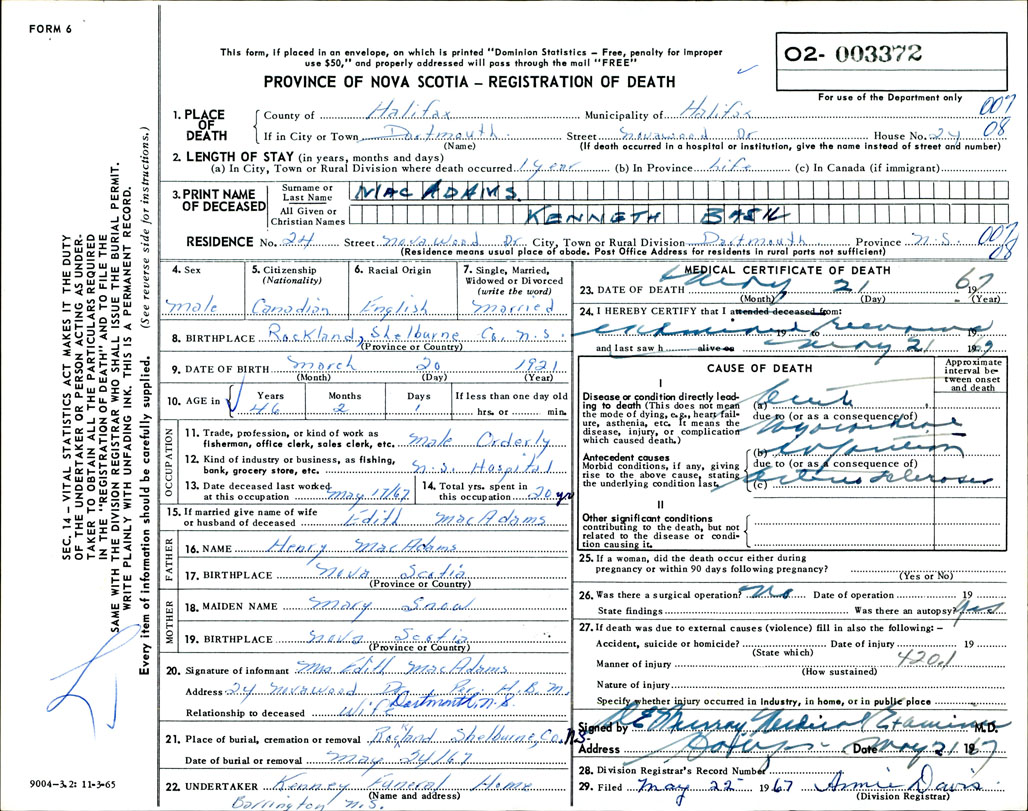 FORM 6
This form, if placed in an envelope, on which is printed "Dominion Statistics – Free, penalty for improper
use $50," and properly addressed will pass through the mail "FREE"
PROVINCE OF NOVA SCOTIA – REGISTRATION OF DEATH
02- 003372
For use of the Department only
007
08
1. PLACE OF DEATH
County of Halifax Municipality of Halifax
If in City or Town Dartmouth. Street Novawood Dr House No. 24
(Name) (If death occurred in a hospital or institution, give the name instead of street and number)
2. LENGTH OF STAY (in years, months and days)
(a) In City, Town or Rural Division where death occurred 1 year (b) In Province Life (c) In Canada (if immigrant)
3. PRINT NAME OF DECEASED
Surname or Last Name MAC ADAMS.
All Given or Christian Names KENNETH BASIL
RESIDENCE No. 24 Street Novawood Dr City, Town or Rural Division Dartmouth Province N.S. 007
08
(Residence means usual place of abode. Post Office Address for residents in rural parts not sufficient)
4. Sex
male
5. Citizenship
(Nationality)
Canadian
6. Racial Origin
English
7. Single, Married,
Widowed or Divorced
(write the word)
Married
8. BIRTHPLACE Rockland, Shelburne Co. N.S.
(Province or Country)
9. DATE OF BIRTH March 20 1921
(Month) (Day) (Year)
10. AGE in Years Months Days If less than one day old
46 2 1 hrs. or min.
OCCUPATION
11. Trade, profession, or kind of work as
fisherman, office clerk, sales clerk, etc. Male Orderly
12. Kind of industry or business, as fishing,
bank, grocery store, etc. N.S. Hospital
13. Date deceased last worked
at this occupation May 17/67
14. Total yrs. spent in
this occupation 20 yr
15. If married give name of wife
or husband of deceased Edith MacAdams
FATHER
16. NAME Henry MacAdams
17. BIRTHPLACE Nova Scotia
(Province or Country)
MOTHER
18. MAIDEN NAME Mary Snow
19. BIRTHPLACE Nova Scotia
(Province or Country)
20. Signature of informant Mrs. Edith MacAdams
Address 24 Novawood Dr. Per. H.B.M.
Dartmouth, N.S.
Relationship to deceased Wife
21. Place of burial, cremation or removal Rockland Shelburne, Co. N.S.
Date of burial or removal May 24/67
22. UNDERTAKER Kenney Funeral Home
(Name and address)
Barrington N.S.
MEDICAL CERTIFICATE OF DEATH
23. DATE OF DEATH May 21 1967
(Month) (Day) (Year)
24. I HEREBY CERTIFY that I attended deceased from:
examined 19 to 19
and last saw h alive on May 21 1967
CAUSE OF DEATH
Approximate
interval be-
tween onset
and death
I
Disease or condition directly lead-
ing to death (This does not mean
the mode of dying, e.g., heart fail-
ure, asthenia, etc. It means the
disease, injury, or complication
which caused death.)
(a) Acute
due to (or as a consequence of)
Myocardial
Antecedent causes
Morbid conditions, if any, giving
rise to the above cause, stating
the underlying condition last.
(b) Infarction
due to (or as a consequence of)
(c) Arteriosclerosis
II
Other significant conditions
contributing to the death, but not
related to the disease or condi-
tion causing it.
25. If a woman, did the death occur either during
pregnancy or within 90 days following pregnancy?
(Yes or No)
26. Was there a surgical operation? No Date of operation 19
State findings Was there an autopsy? Yes
27. If death was due to external causes (violence) fill in also the following: –
Accident, suicide or homicide? Date of injury 19
(State which)
Manner of injury 420.1
(How sustained)
Nature of injury
Specify whether injury occurred in industry, in home, or in public place
Signed by Murray Medical Examiner M.D.
Address Date May 21 1967
28. Division Registrar's Record Number
29. Filed May 22 1967 Annie Davis
(Division Registrar)
SEC. 14 – VITAL STATISTICS ACT MAKES IT THE DUTY
OF THE UNDERTAKER OR PERSON ACTING AS UNDER-
TAKER TO OBTAIN ALL THE PARTICULARS REQUIRED
IN THE "REGISTRATION OF DEATH" AND TO FILE THE
SAME WITH THE DIVISION REGISTRAR WHO SHALL ISSUE THE BURIAL PERMIT.
WRITE PLAINLY WITH UNFADING INK. THIS IS A PERMANENT RECORD.
Every item of information should be carefully supplied. (See reverse side for instructions.)
9004–3.2: 11-3-65